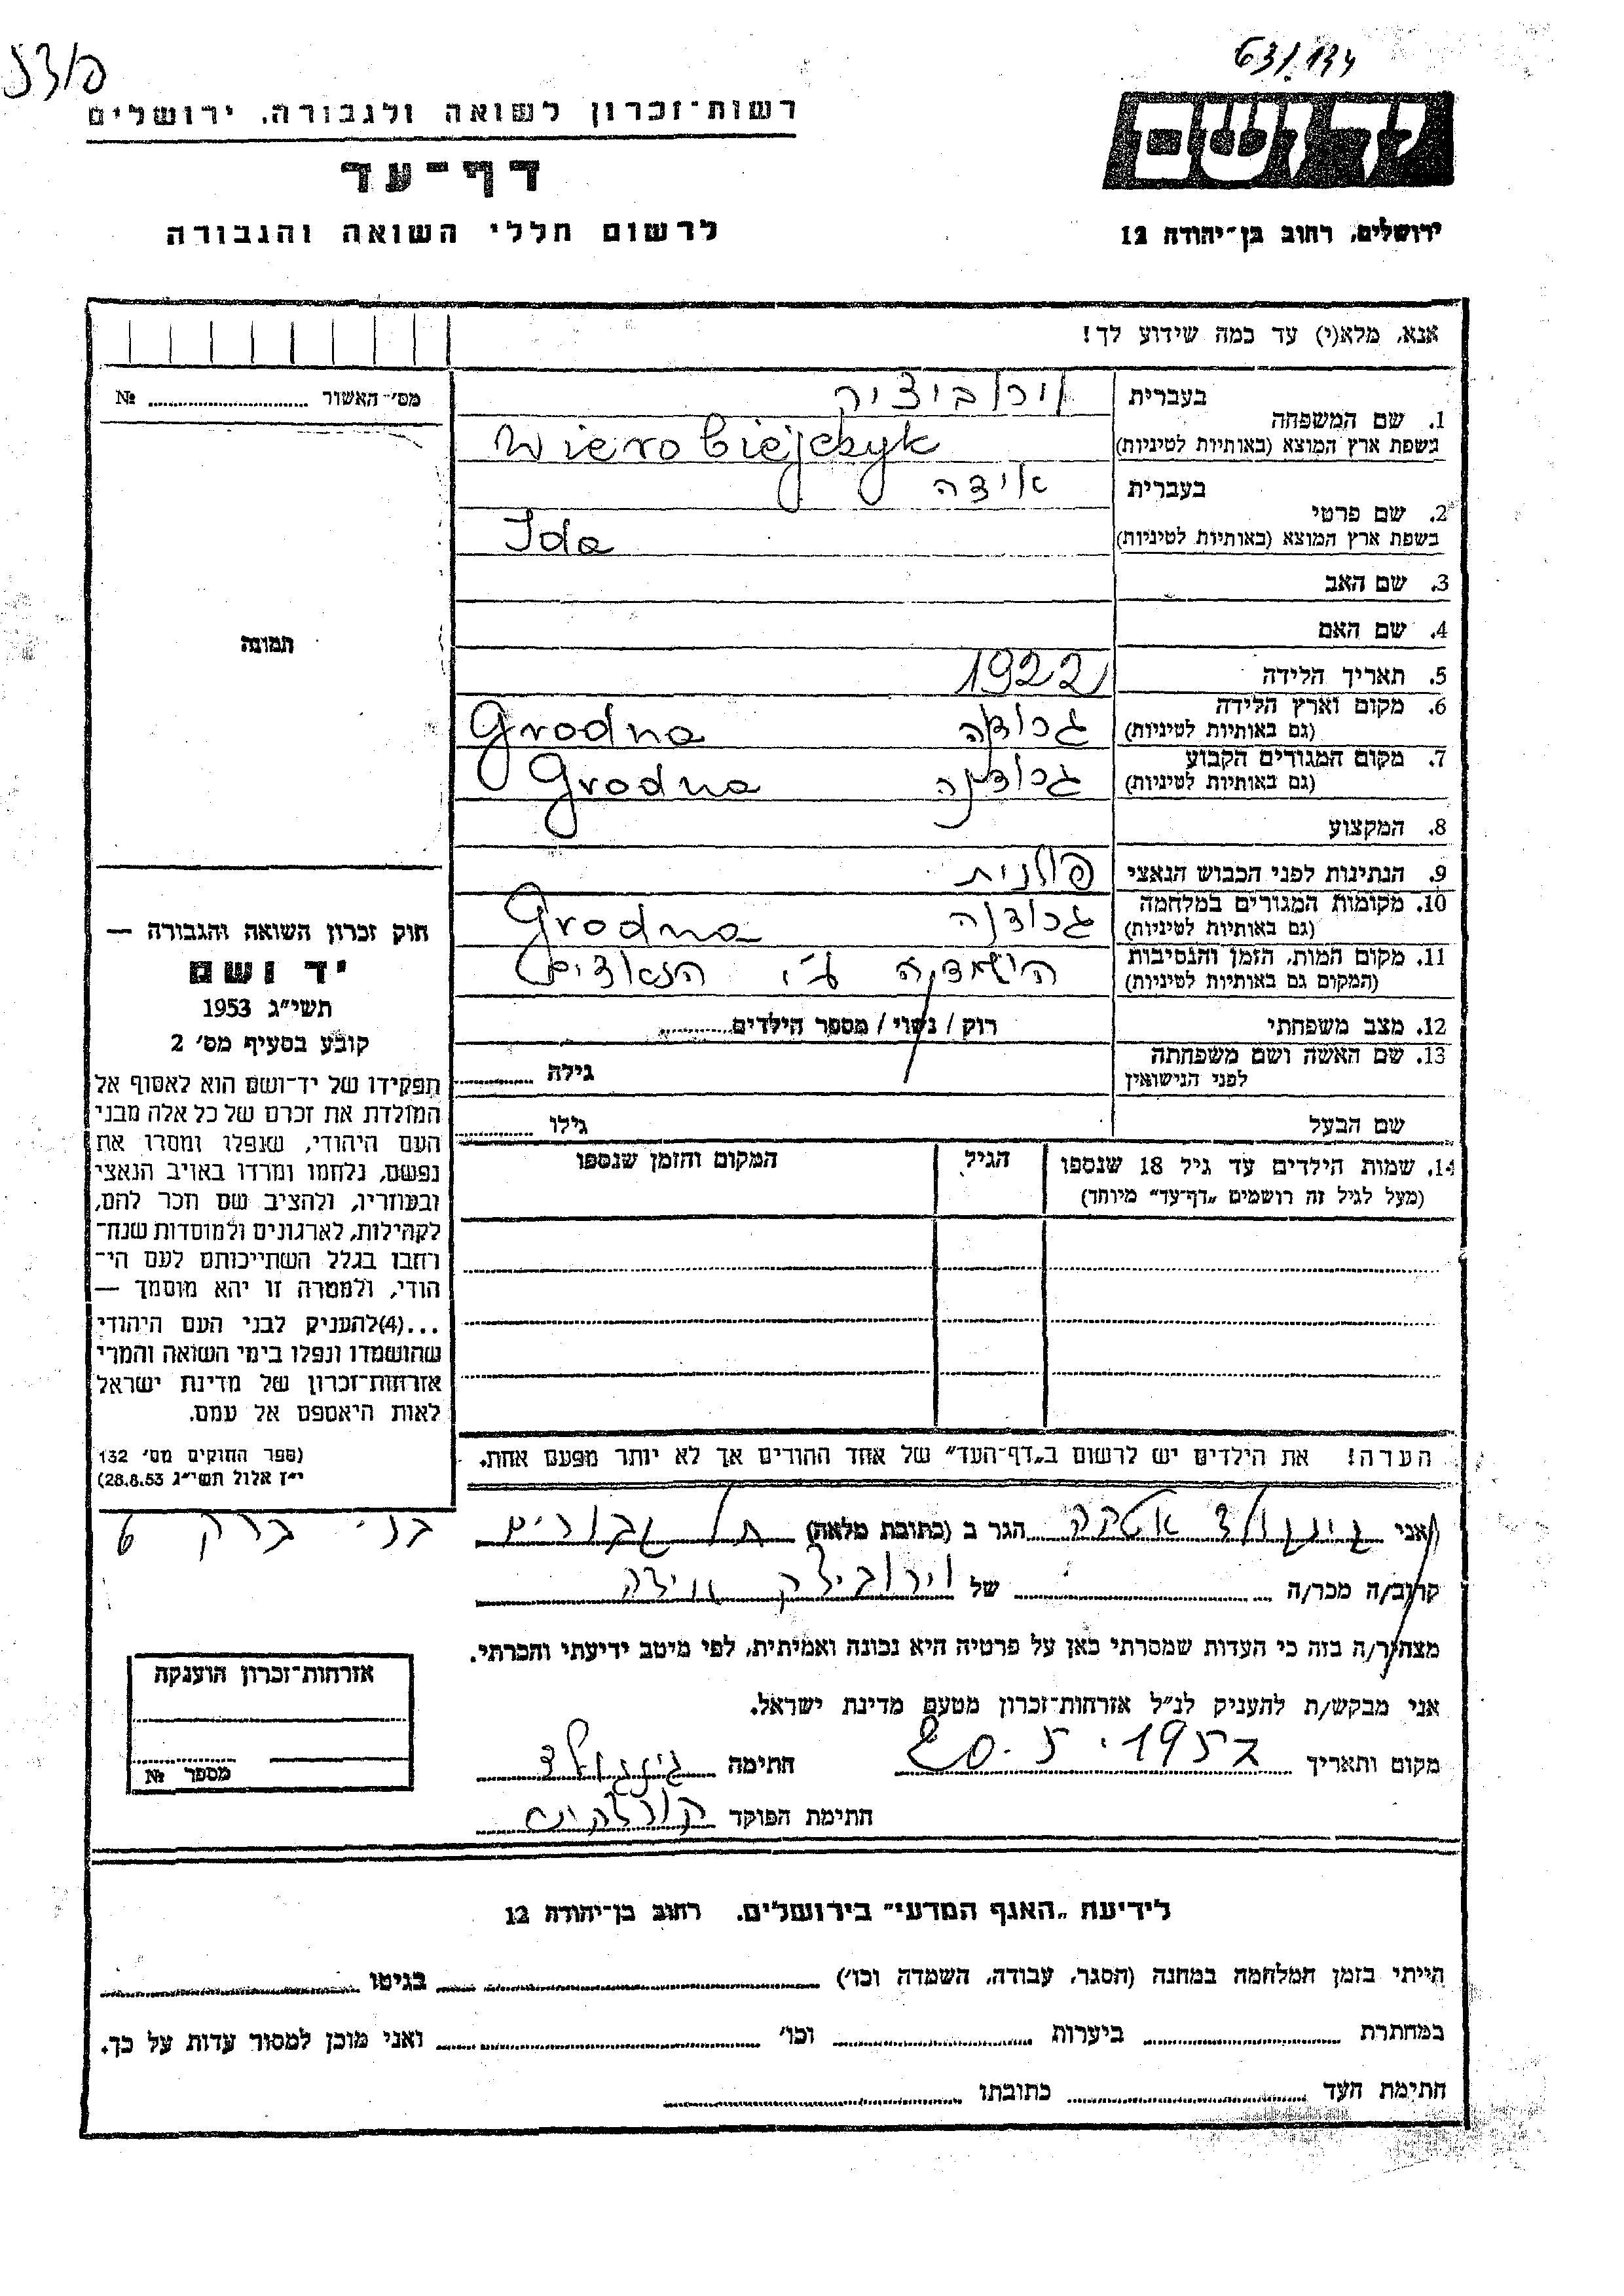 63/134
רשות־זכרון לשואה ולגבורה, ירושלים
דף־עד
לרשום חללי השואה והגבורה
ירושלים, רחוב בן־יהודה 12
אנא, מלא(י) עד כמה שידוע לך!
מס׳־האשור № 
1. שם המשפחה
בעברית
בשפת ארץ המוצא (באותיות לטיניות) Wierobiejczyk
2. שם פרטי
בעברית אידה
בשפת ארץ המוצא (באותיות לטיניות) Ida
3. שם האב
4. שם האם
5. תאריך הלידה 1922
6. מקום וארץ הלידה (גם באותיות לטיניות) גרודנה Grodna
7. מקום המגורים הקבוע (גם באותיות לטיניות) גרודנה Grodna
8. המקצוע
9. הנתינות לפני הכבוש הנאצי פולנית
10. מקומות המגורים במלחמה (גם באותיות לטיניות) גרודנה Grodna
11. מקום המות, הזמן והנסיבות (המקום גם באותיות לטיניות) הושמדה ע״י הנאצים
12. מצב משפחתי רוק / נשוי / מספר הילדים
13. שם האשה ושם משפחתה לפני הנישואין גילה
שם הבעל גילו
14. שמות הילדים עד גיל 18 שנספו
(מעל לגיל זה רושמים „דף־עד״ מיוחד)
הגיל
המקום והזמן שנספו
הערה! את הילדים יש לרשום ב„דף־העד״ של אחד ההורים אך לא יותר מפעם אחת.
תמונה
חוק זכרון השואה והגבורה —
יד ושם
תשי״ג 1953
קובע בסעיף מס׳ 2
תפקידו של יד־ושם הוא לאסוף אל
המולדת את זכרם של כל אלה מבני
העם היהודי, שנפלו ומסרו את
נפשם, נלחמו ומרדו באויב הנאצי
ובעוזריו, ולהציב שם וזכר להם,
לקהילות, לארגונים ולמוסדות שנח־
רחבו בגלל השתייכותם לעם הי־
הודי, ולמטרה זו יהא מוסמך —
...(4)להעניק לבני העם היהודי
שהושמדו ונפלו בימי השואה והמרי
אזרחות־זכרון של מדינת ישראל
לאות היאספם אל עמם.
(ספר החוקים מס׳ 132
י״ז אלול תשי״ג 28.8.53)
אני הגר ב (כתובת מלאה) בני ברק 6
קרוב/ה מכר/ה של אידה
מצהיר/ה בזה כי העדות שמסרתי כאן על פרטיה היא נכונה ואמיתית, לפי מיטב ידיעתי והכרתי.
אני מבקש/ת להעניק לנ״ל אזרחות־זכרון מטעם מדינת ישראל.
מקום ותאריך 20.5.1957 חתימה
חתימת הפוקד
אזרחות־זכרון הוענקה
מספר №
לידיעת „האגף המדעי״ בירושלים, רחוב בן־יהודה 12
הייתי בזמן המלחמה במחנה (הסגר, עבודה, השמדה וכו׳) בגיטו
במחתרת ביערות וכו׳ ואני מוכן למסור עדות על כך.
חתימת העד כתובתו